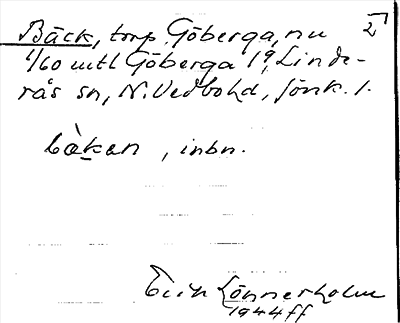 Bäck, torp Göberga, nu 2
1/60 mtl Göberga 19, Linde-
rås sn, N. Vedbo hd, Jönk. l.
bækan, inbn.
Erik Lönnerholm
1944 ff